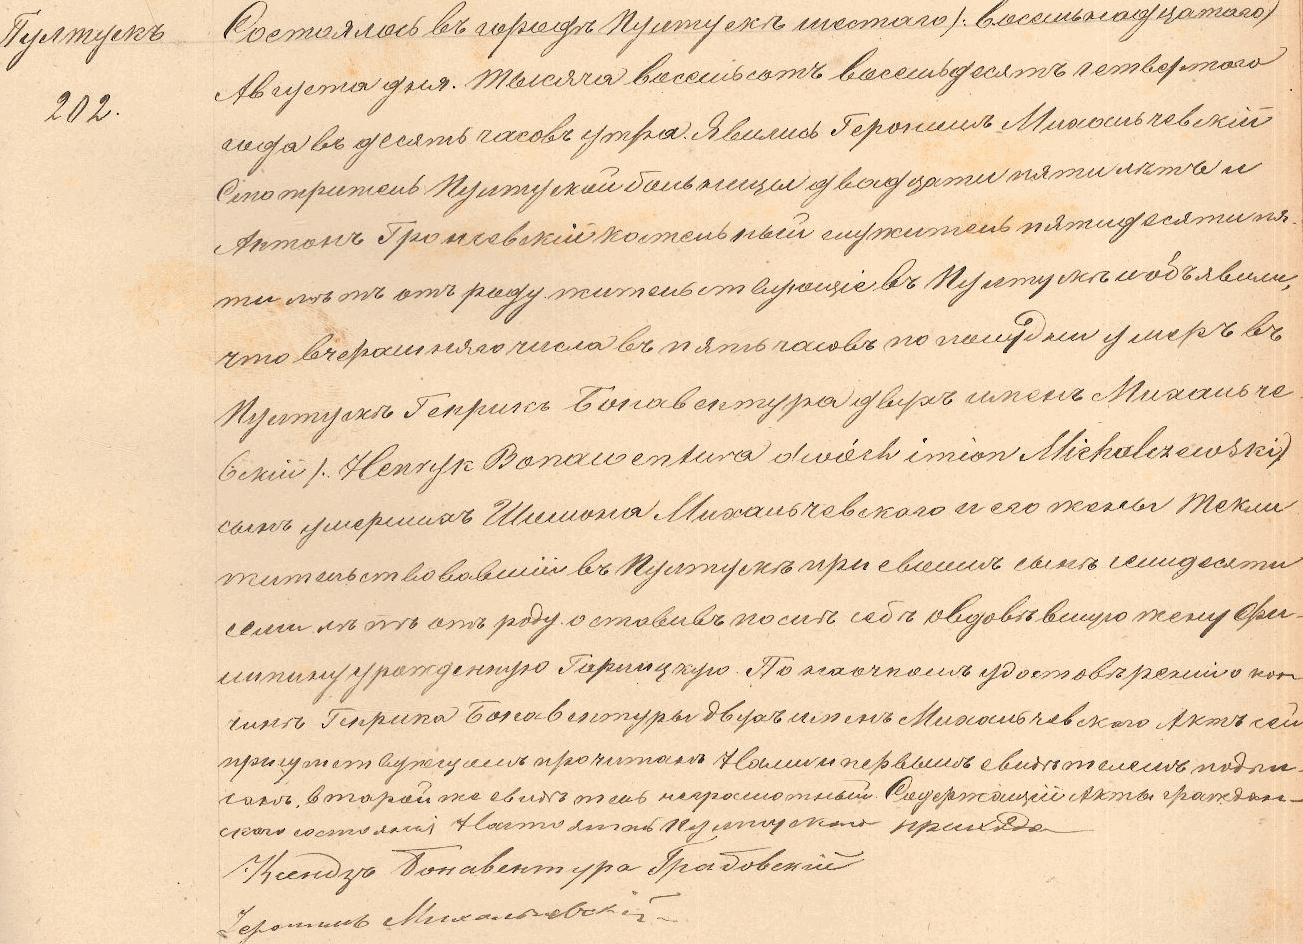 Пултускъ
202.
Состоялось въ городѣ Пултускѣ шестаго /: восемьнадцатаго/
Августа дня. Тысяча восемьсотъ восемьдесятъ четвертаго
года въ десять часовъ утра. Явились Геронимъ Михальчевскій
Смотритель Пултуской больницы двадцати пяти лѣтъ и
Антонъ Грончевскій костельный служитель пятидесяти пя-
ти лѣтъ отъ роду жительствующіе въ Пултускѣ и объявили,
что вчерашняго числа въ пять часовъ по полудни умеръ въ
Пултускѣ Генрикъ Бонавентура двухъ именъ Михальче-
вскій /: Henryk Bonawentura dwóch imion Michalczewski/
сынъ умершихъ Шимона Михальчевскаго и его жены Текли
жительствовавшій въ Пултускѣ при своимъ сынѣ семидесяти
семи лѣтъ отъ роду оставивъ послѣ себѣ овдовѣвшую жену Фи-
липину урожденную Горицкую. По наочномъ удостовѣреніи о кон-
чинѣ Генрика Бонавентуры двухъ именъ Михальчевскаго Актъ сей
присутствующимъ прочитанъ Нами и первымъ свидѣтелемъ подпи-
санъ, второй же свидѣтель неграмотный. Содержащій Акты граждан-
скаго состоянія Настоятель Пултускаго прихода
Ксендзъ Бонавентура Грабовскій
Геронимъ Михальчевскій